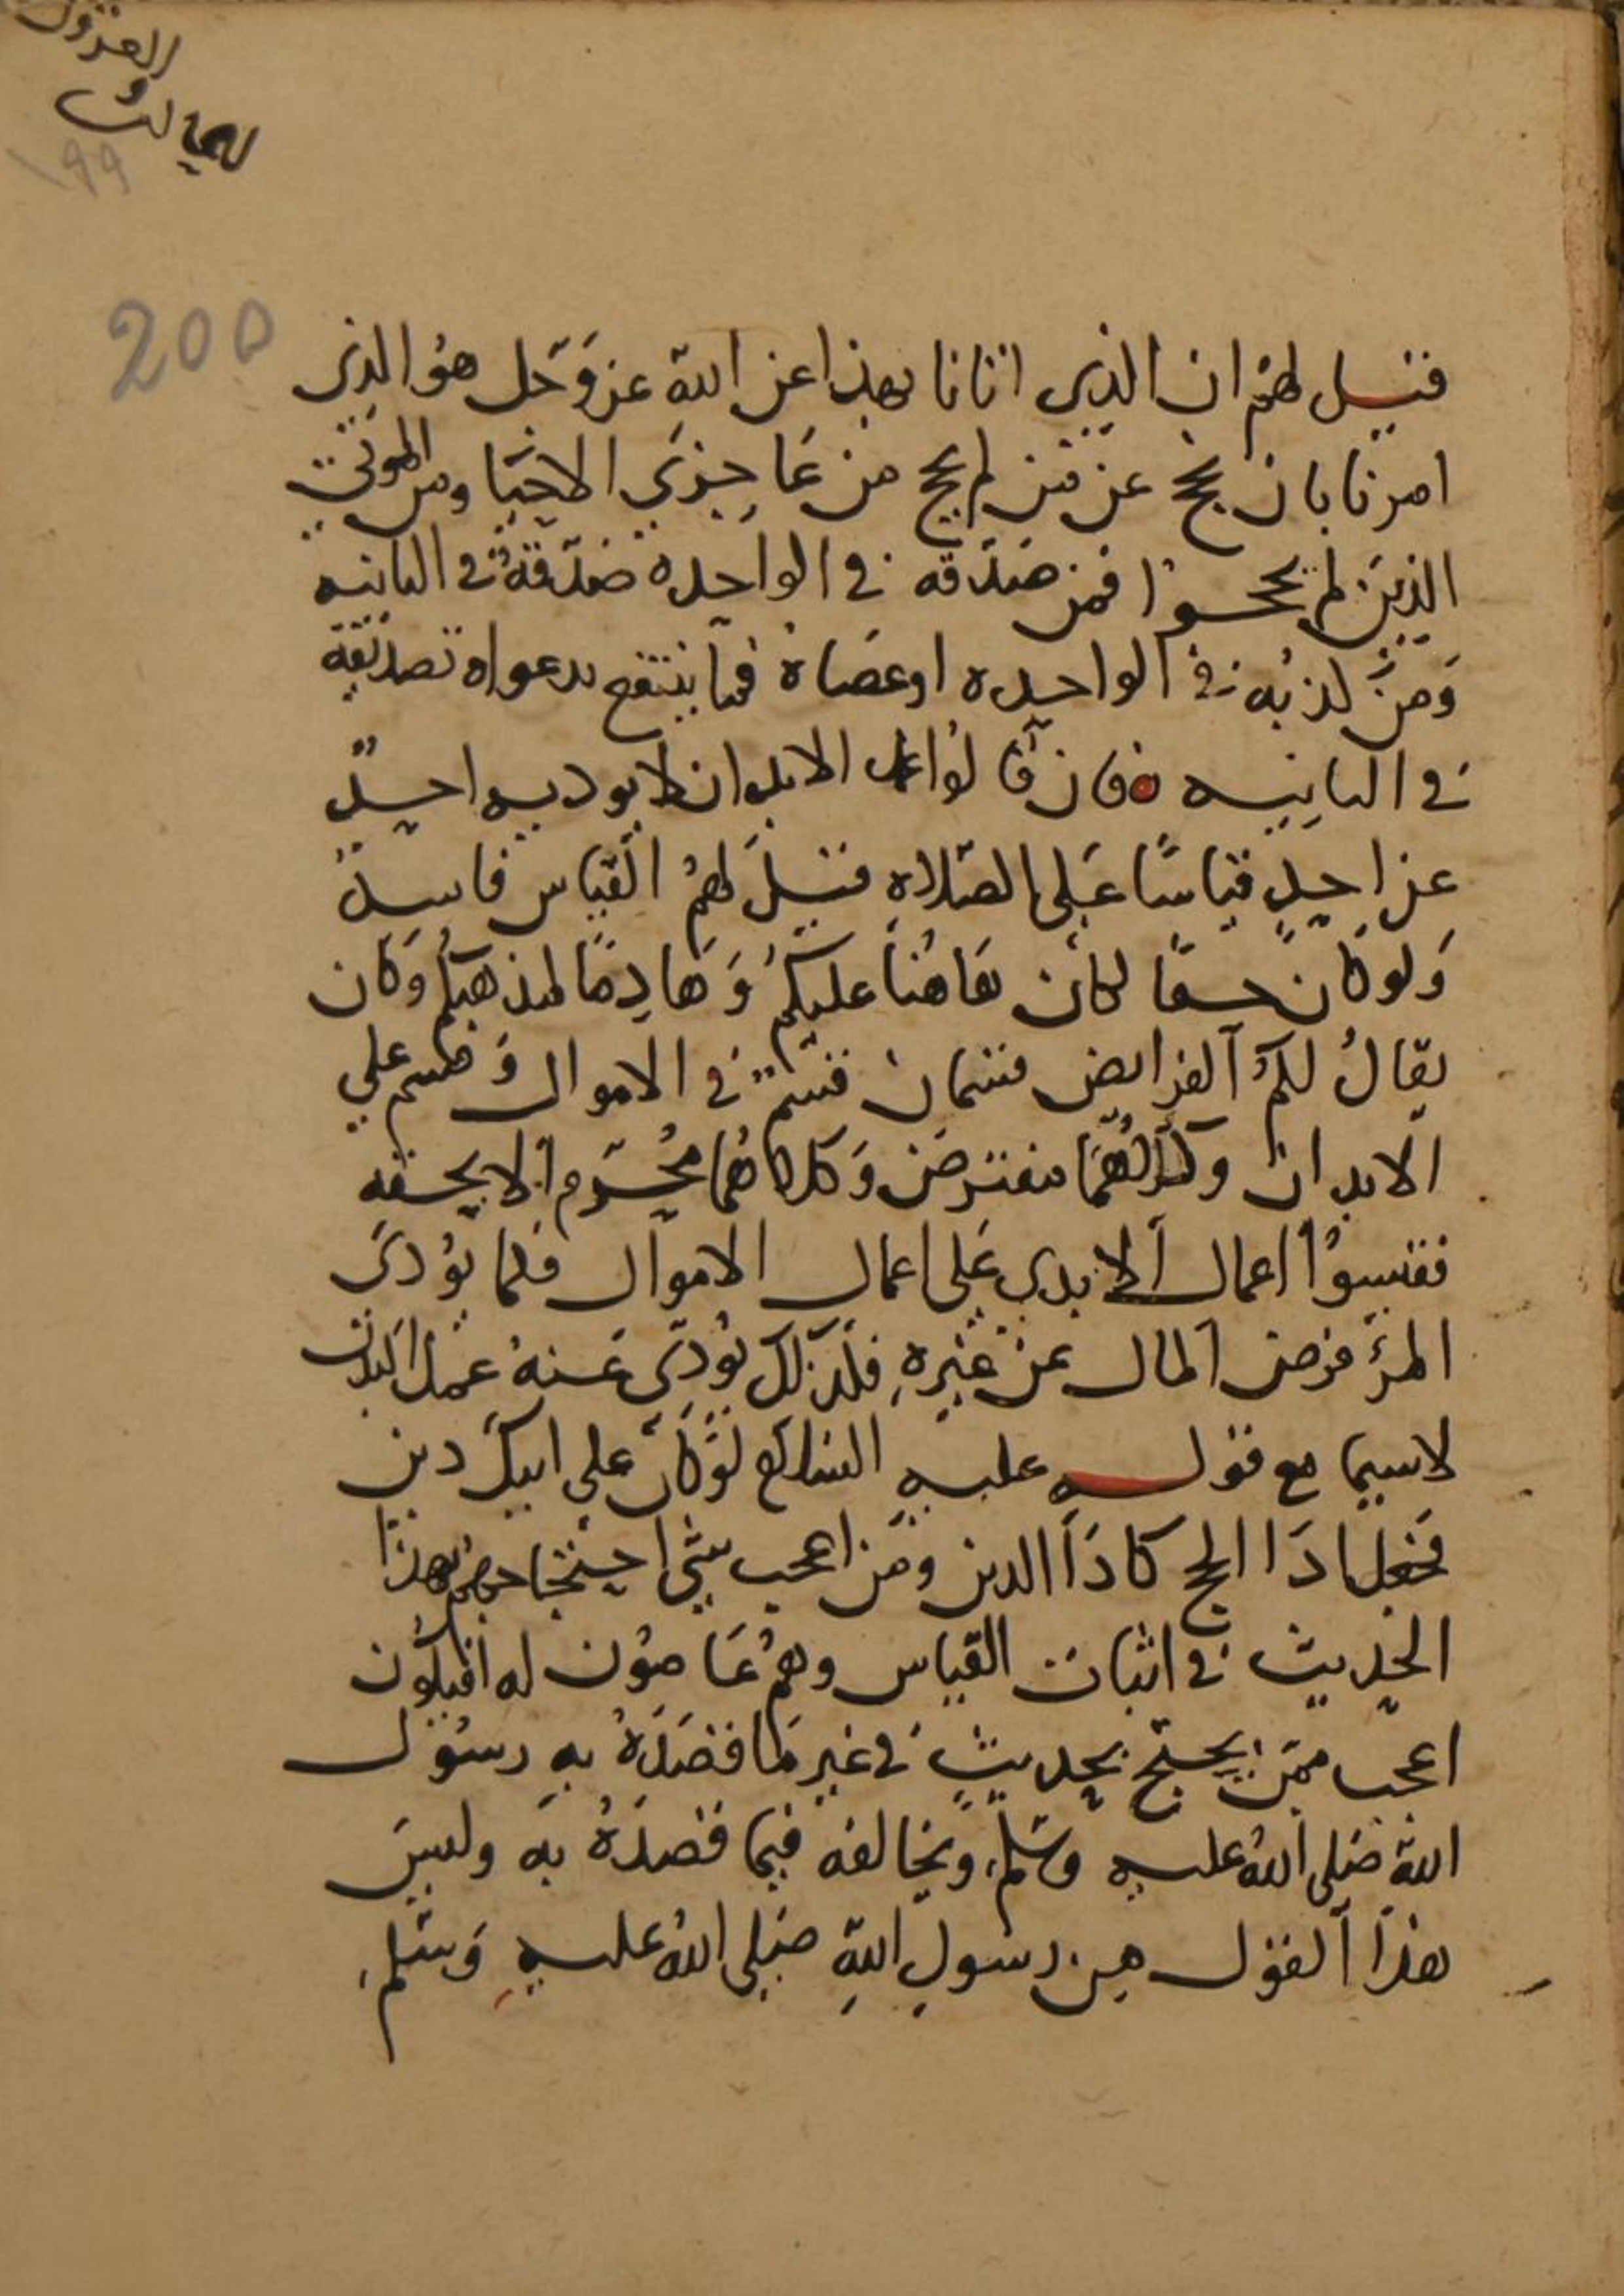 200
199
فقيل لهم ان الذي اتانا بهذا عن الله عز وجل هو الذي
امرنا بان نحج عن من لم يحج من عاجزي الاحيا ومن الموتى
الذين لم يحجوا فمن صدقه في الواحده صدقه في الثانيه
ومن كذبه في الواحده او عصاه فما ينتفع بدعواه تصديقه
في الثانيه فان قالوا عمل الابدان لا يوديه احد
عن احد قياسا على الصلاه فقيل لهم القياس فاسد
ولو كان حقا لكان هاهنا عليكم وهادما لمذهبكم وكان
يقال لكم الفرايض قسمان قسم في الاموال وقسم على
الابدان وكلاهما مفترض وكلاهما محرم الا بحقه
فقيسوا اعمال الابدان على اعمال الاموال فكما يؤدى
المرء فرض المال عن غيره فكذلك يؤدى عنه عمل البدن
لاسيما مع قوله عليه السلام لو كان على ابيك دين
فجعل ادا الحج كادا الدين ومن اعجب شي احتجاجهم بهذا
الحديث في اثبات القياس وهم عاصون له افيكون
اعجب ممن يحتج بحديث في غير ما قصد به رسول
الله صلى الله عليه وسلم ويخالفه فيما قصده به وليس
هذا القول من رسول الله صلى الله عليه وسلم